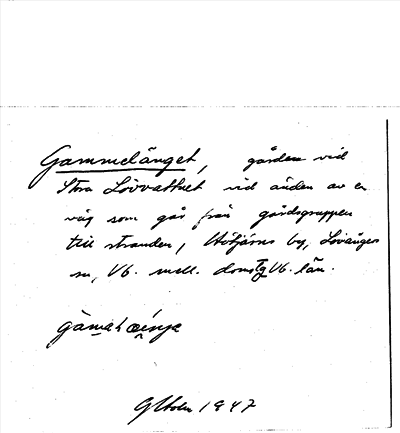 Gammelänget, gården vid
Stora Lövvattnet vid änden av en
väg som går från gårdsgruppen
till stranden, by, Lövångers
sn, Vb. mell. doms. Vb. län.
1947